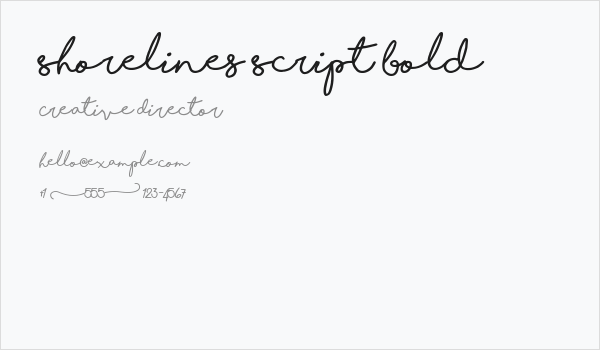 shorelines script bold
creative director
hello@example.com
+1 (555) 123-4567